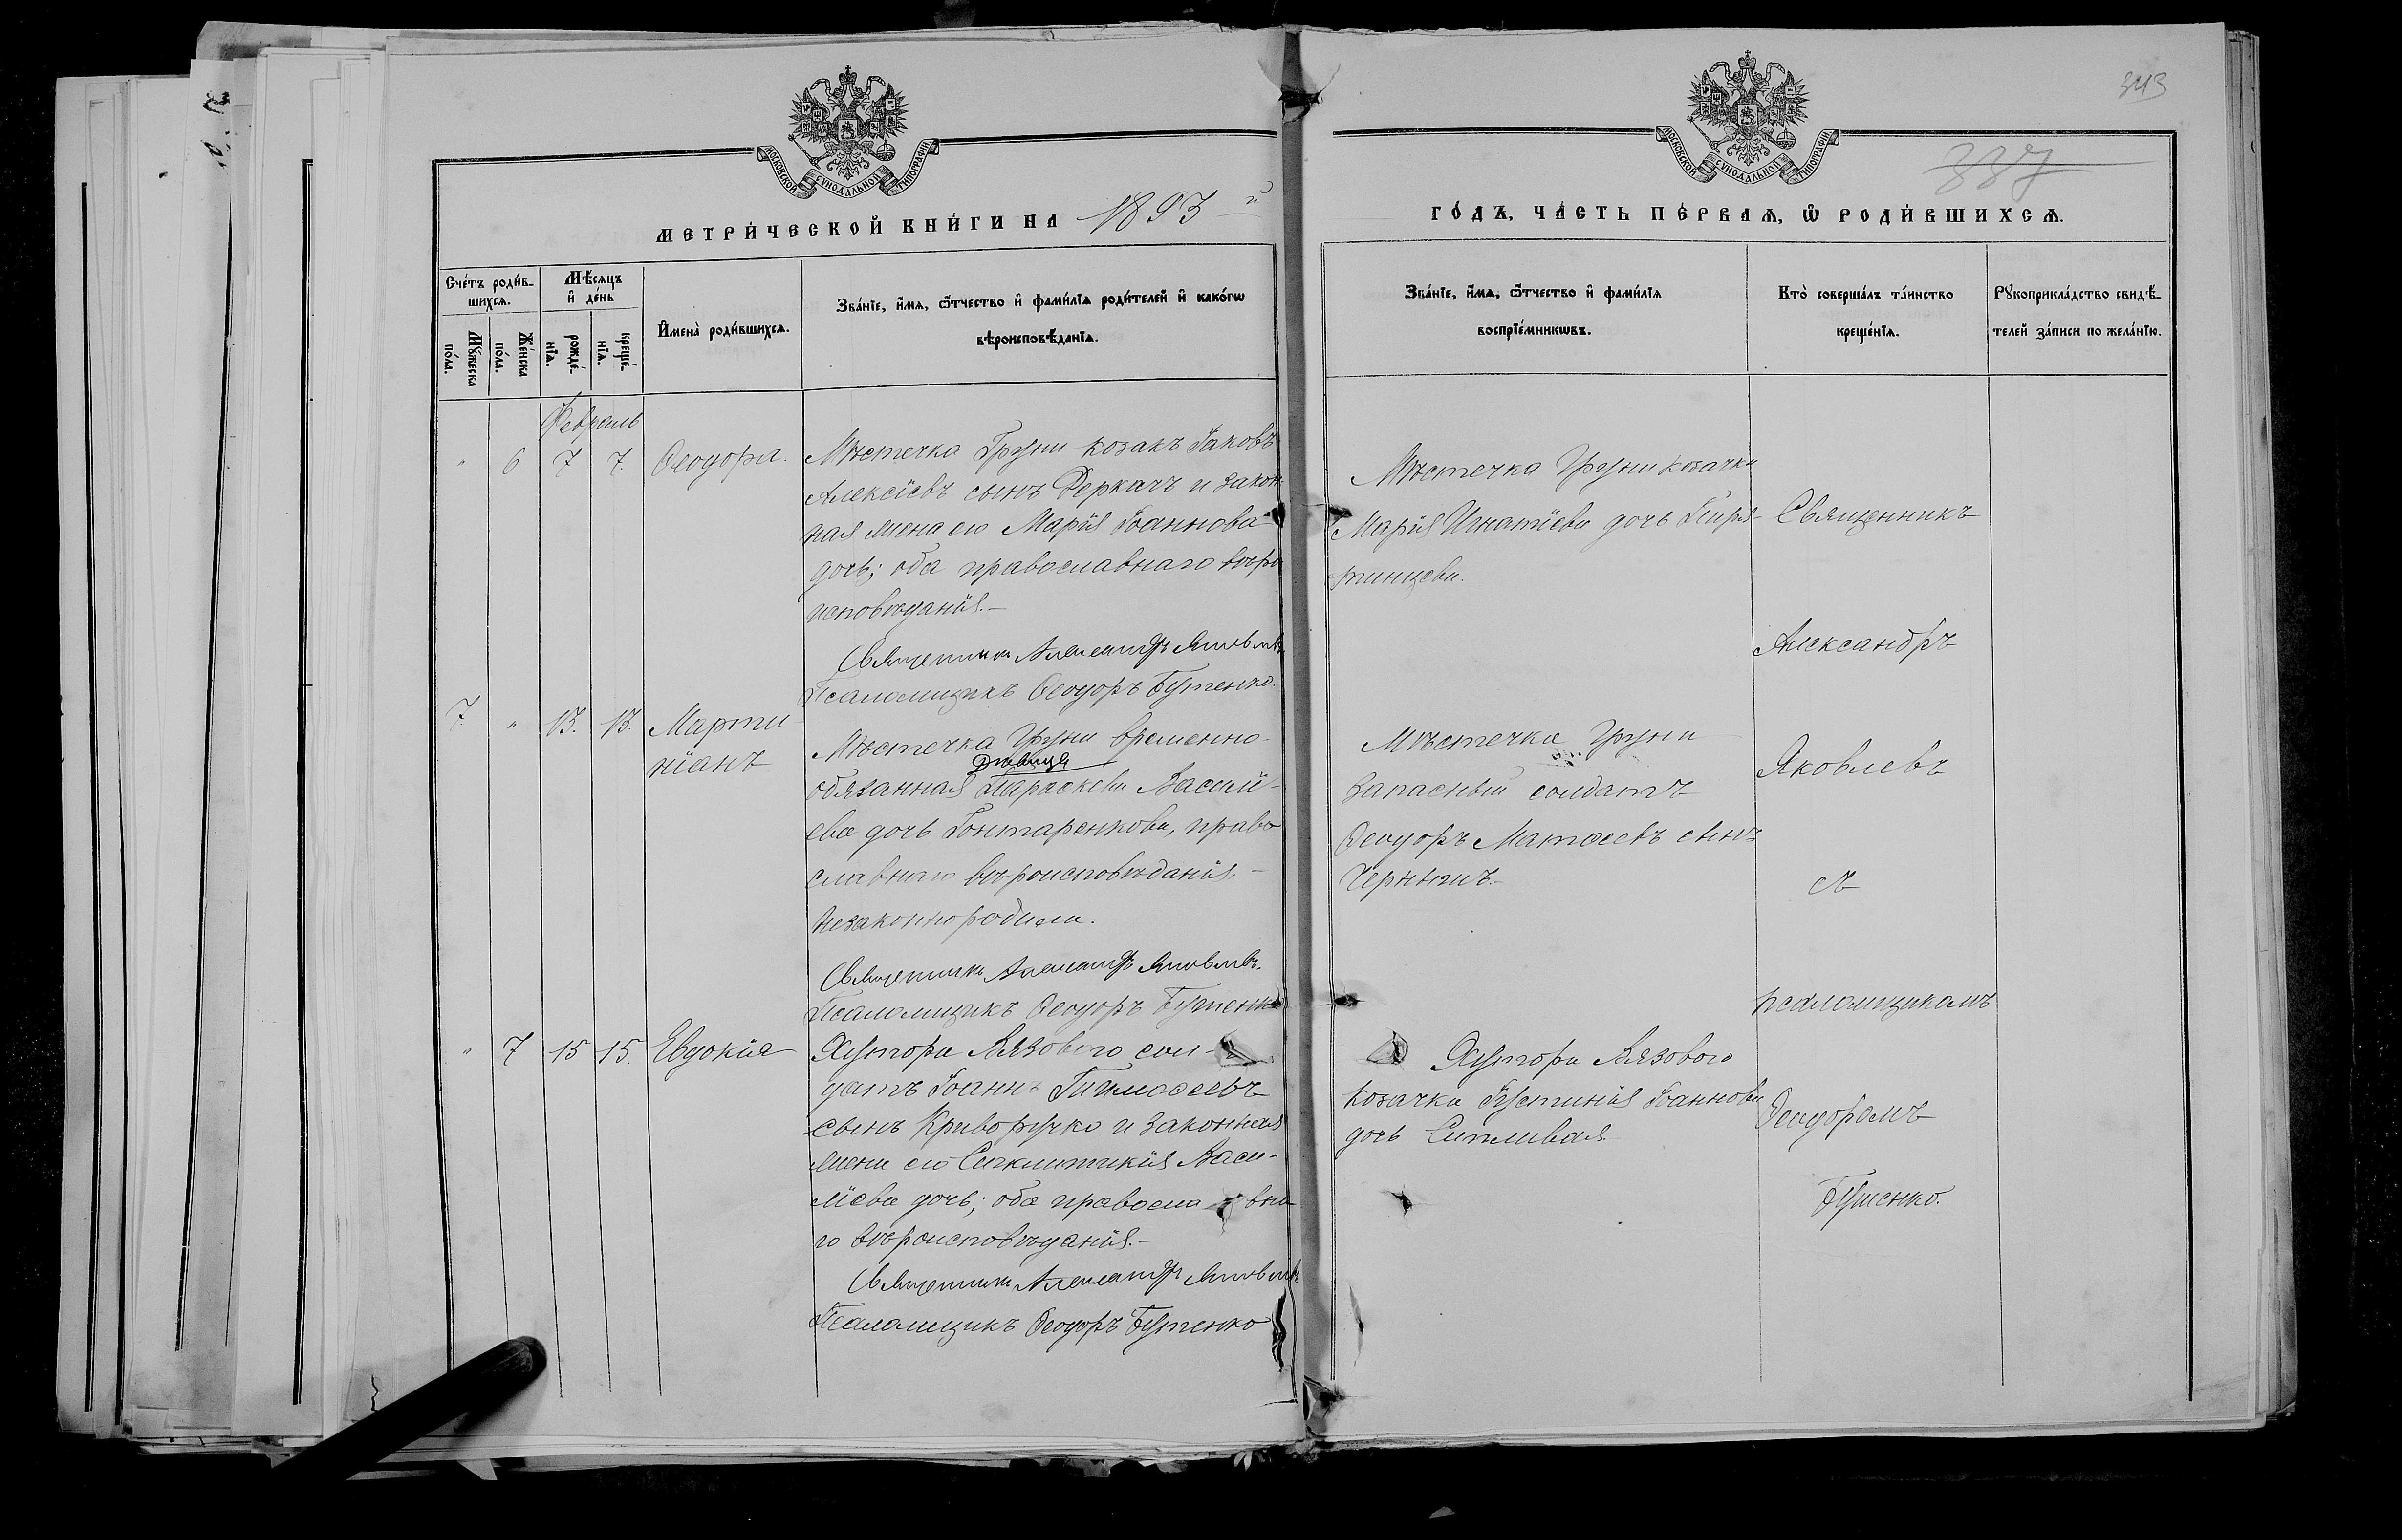 343
337
МОСКОВСКОЙ СѴНОДАЛЬНОЙ ТИПОГРАФІИ
МОСКОВСКОЙ СѴНОДАЛЬНОЙ ТИПОГРАФІИ
МЕТРИ́ЧЕСКОЙ КНИ́ГИ НА 1893 й
ГО́ДЪ, ЧА́СТЬ ПЕ́РВАЯ, Ѿ РОДИ́ВШИХСЯ.
Сче́тъ роди́в-
шихся.
Му́жеска по́ла.
Же́нска по́ла.
Мѣ́сяцъ
и де́нь
рожде́-
нія.
креще́-
нія.
Имена̀ роди́вшихся.
Зва́ніе, и́мя, ѻ́тчество и фами́лія роди́телей и како́гѡ
вѣроисповѣ́данія.
Зва́ніе, и́мя, ѻ́тчество и фами́лія
воспріе́мникѡвъ.
Кто̀ соверша́лъ та́инство
креще́нія.
Рукоприкла́дство свидѣ́-
телей за́писи по жела́нію.
Февраль
" 6 7 7. Ѳеодора.
Мѣстечка Груни козакъ Іаковъ
Алексіевъ сынъ Деркачъ и закон-
ная жена его Марія Іоаннова
дочь; оба православнаго вѣро
исповѣданія.—
Священникъ Александръ Яковлевъ
Псаломщикъ Ѳеодоръ Бутенко.
Мѣстечка Груни козачка
Марія Игнатіева дочь
Священникъ
Александръ
Яковлевъ
съ
псаломщикомъ
Ѳеодоромъ
Бутенко.
7. " 13. 13. Марти
ніанъ
Мѣстечка Груни временно-
дѣвица
обязанная Параскева Василі-
ева дочь Гонтаренкова, право
славнаго вѣроисповѣданія,—
незаконнородила.
Священникъ Александръ Яковлевъ.
Псаломщикъ Ѳеодоръ Бутенко
Мѣстечка Груни
запасный солдатъ
Ѳеодоръ Матѳеевъ сынъ
Чернышъ.—
" 7 15 15. Евдокія
Хутора Вязового сол-
датъ Іоаннъ Тимоѳеевъ
сынъ Криворучко и законная
жена его Синклитикія Васи-
ліева дочь; оба православна
го вѣроисповѣданія.—
Священникъ Александръ Яковлевъ
Псаломщикъ Ѳеодоръ Бутенко
Хутора Вязового
козачка Іустинія Іоаннова
дочь Сипливая